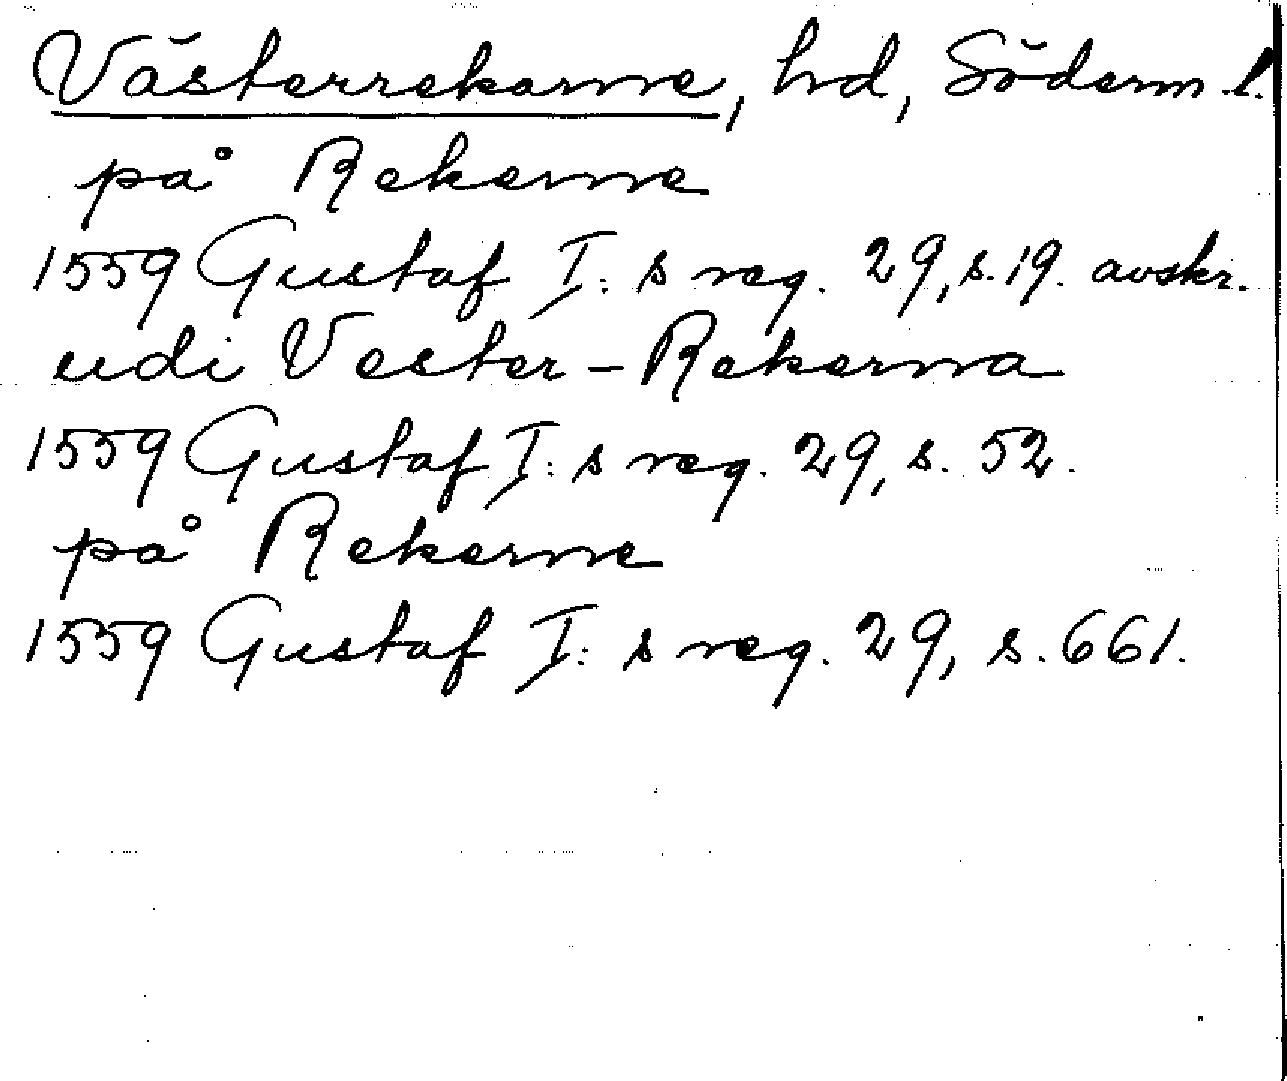 Västerrekarne, hd, Söderm. l.
på Rekerne
1559 Gustaf I:s reg. 29, s. 19. avskr.
udi Vester-Rekerna
1559 Gustaf I:s reg. 29, s. 52.
på Rekerne
1559 Gustaf I:s reg. 29, s. 661.